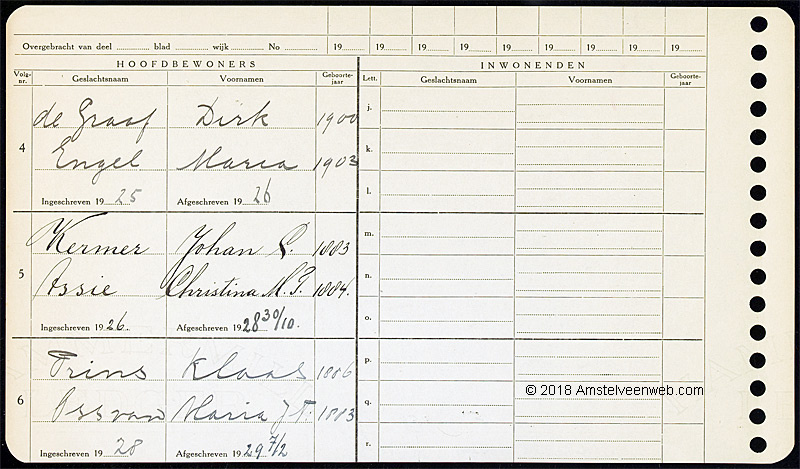 Overgebracht van deel ............ blad ............ wijk ............ No ............ 19...... 19...... 19...... 19...... 19...... 19...... 19...... 19...... 19......
HOOFDBEWONERS INWONENDEN
Volg-nr. Geslachtsnaam Voornamen Geboorte-jaar Lett. Geslachtsnaam Voornamen Geboorte-jaar
j.
4 de Graaf Dirk 1900
k.
Engel Maria 1903
l.
Ingeschreven 19 25 Afgeschreven 19 26
m.
5 Kermer Johan C. 1883
n.
Assie Christina M. P. 1884.
o.
Ingeschreven 19 26. Afgeschreven 19 28 30/10.
p.
6 Prins Klaas 1886
q.
Oss van Maria J. 1883
r.
Ingeschreven 19 28 Afgeschreven 19 29 7/2
© 2018 Amstelveenweb.com